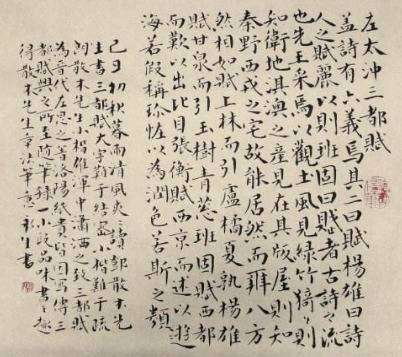 左太沖三都賦
蓋詩有六義焉其二曰賦楊雄曰詩
人之賦麗以則班固曰賦者古詩之流
也先王采焉以觀土風見綠竹猗々則
知衛地淇澳之產見在其版屋則知
秦野西戎之宅故能居然而辨八方
然相如賦上林而引盧橘夏熟楊雄
賦甘泉而引玉樹青蔥班固賦西都
而歎以出比目張衡賦西京而述以遊
海若假稱珍怪以為潤色若斯之類
初秋暮雨清風爽讀鄧散木先
生書三都賦大字難于結密小楷難于疏
朗散木先生小楷瀟洒之致三都賦
為晉代左思之著洛陽紙貴皆因寫傳三
都賦興之所至隨筆錄一小段品味書之趣
得散木先生章法筆意 生書